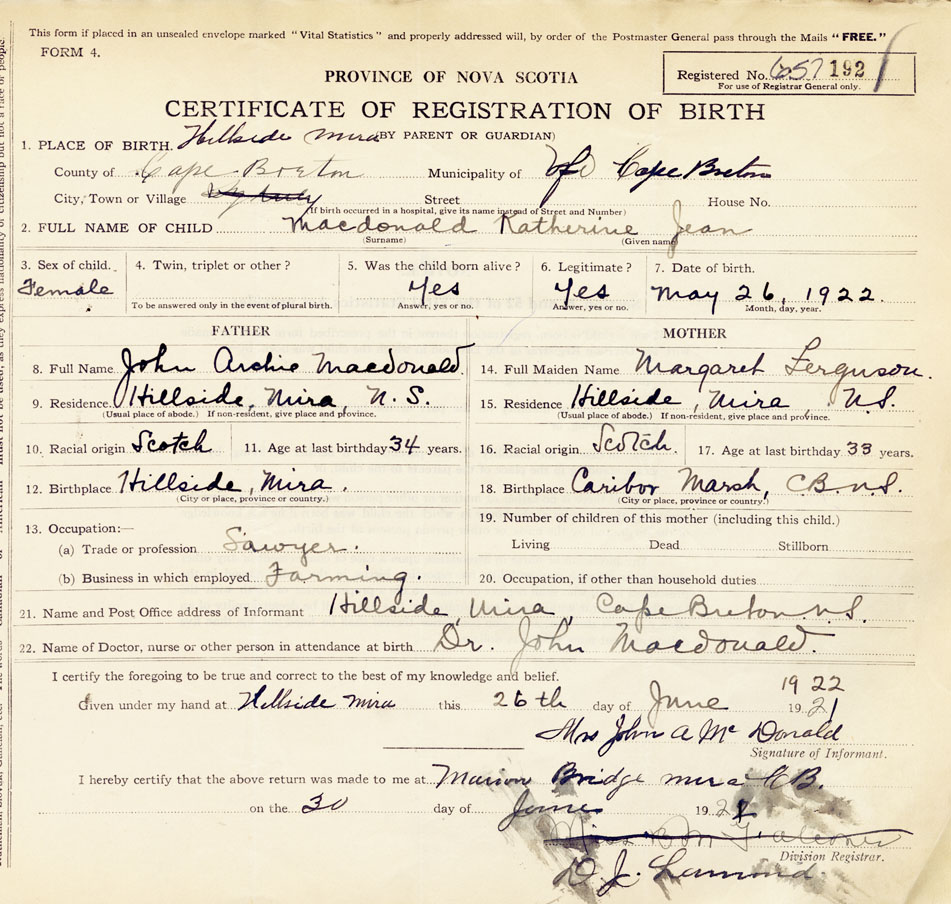 This form if placed in an unsealed envelope marked "Vital Statistics" and properly addressed will, by order of the Postmaster General pass through the Mails "FREE."
FORM 4.
PROVINCE OF NOVA SCOTIA
Registered No. 657 192
For use of Registrar General only.
CERTIFICATE OF REGISTRATION OF BIRTH
(BY PARENT OR GUARDIAN)
1. PLACE OF BIRTH. Hillside Mira
County of Cape Breton Municipality of Cape Breton
City, Town or Village Street House No.
(If birth occurred in a hospital, give its name instead of Street and Number)
2. FULL NAME OF CHILD Macdonald Katherine Jean
(Surname) (Given name)
3. Sex of child. 4. Twin, triplet or other? 5. Was the child born alive? 6. Legitimate? 7. Date of birth.
Female Yes Yes May 26, 1922.
To be answered only in the event of plural birth. Answer, yes or no. Answer, yes or no. Month, day, year.
FATHER MOTHER
8. Full Name John Archie Macdonald. 14. Full Maiden Name Margaret Ferguson.
9. Residence. Hillside, Mira, N.S. 15. Residence Hillside, Mira, N.S.
(Usual place of abode.) If non-resident, give place and province. (Usual place of abode.) If non-resident, give place and province.
10. Racial origin Scotch 11. Age at last birthday 34 years. 16. Racial origin Scotch. 17. Age at last birthday 33 years.
12. Birthplace Hillside, Mira. 18. Birthplace Caribor Marsh, C.B. N.S.
(City or place, province or country.) (City or place, province or country.)
13. Occupation:— 19. Number of children of this mother (including this child.)
(a) Trade or profession Sawyer. Living Dead Stillborn
(b) Business in which employed Farming. 20. Occupation, if other than household duties
21. Name and Post Office address of Informant Hillside, Mira, Cape Breton N.S.
22. Name of Doctor, nurse or other person in attendance at birth Dr. John Macdonald.
I certify the foregoing to be true and correct to the best of my knowledge and belief.
1922
Given under my hand at Hillside Mira this 26th day of June 1921
Mrs John A McDonald
Signature of Informant.
I hereby certify that the above return was made to me at Marion Bridge Mira C.B.
on the 30 day of June 192
Miss
Division Registrar.
D. J.